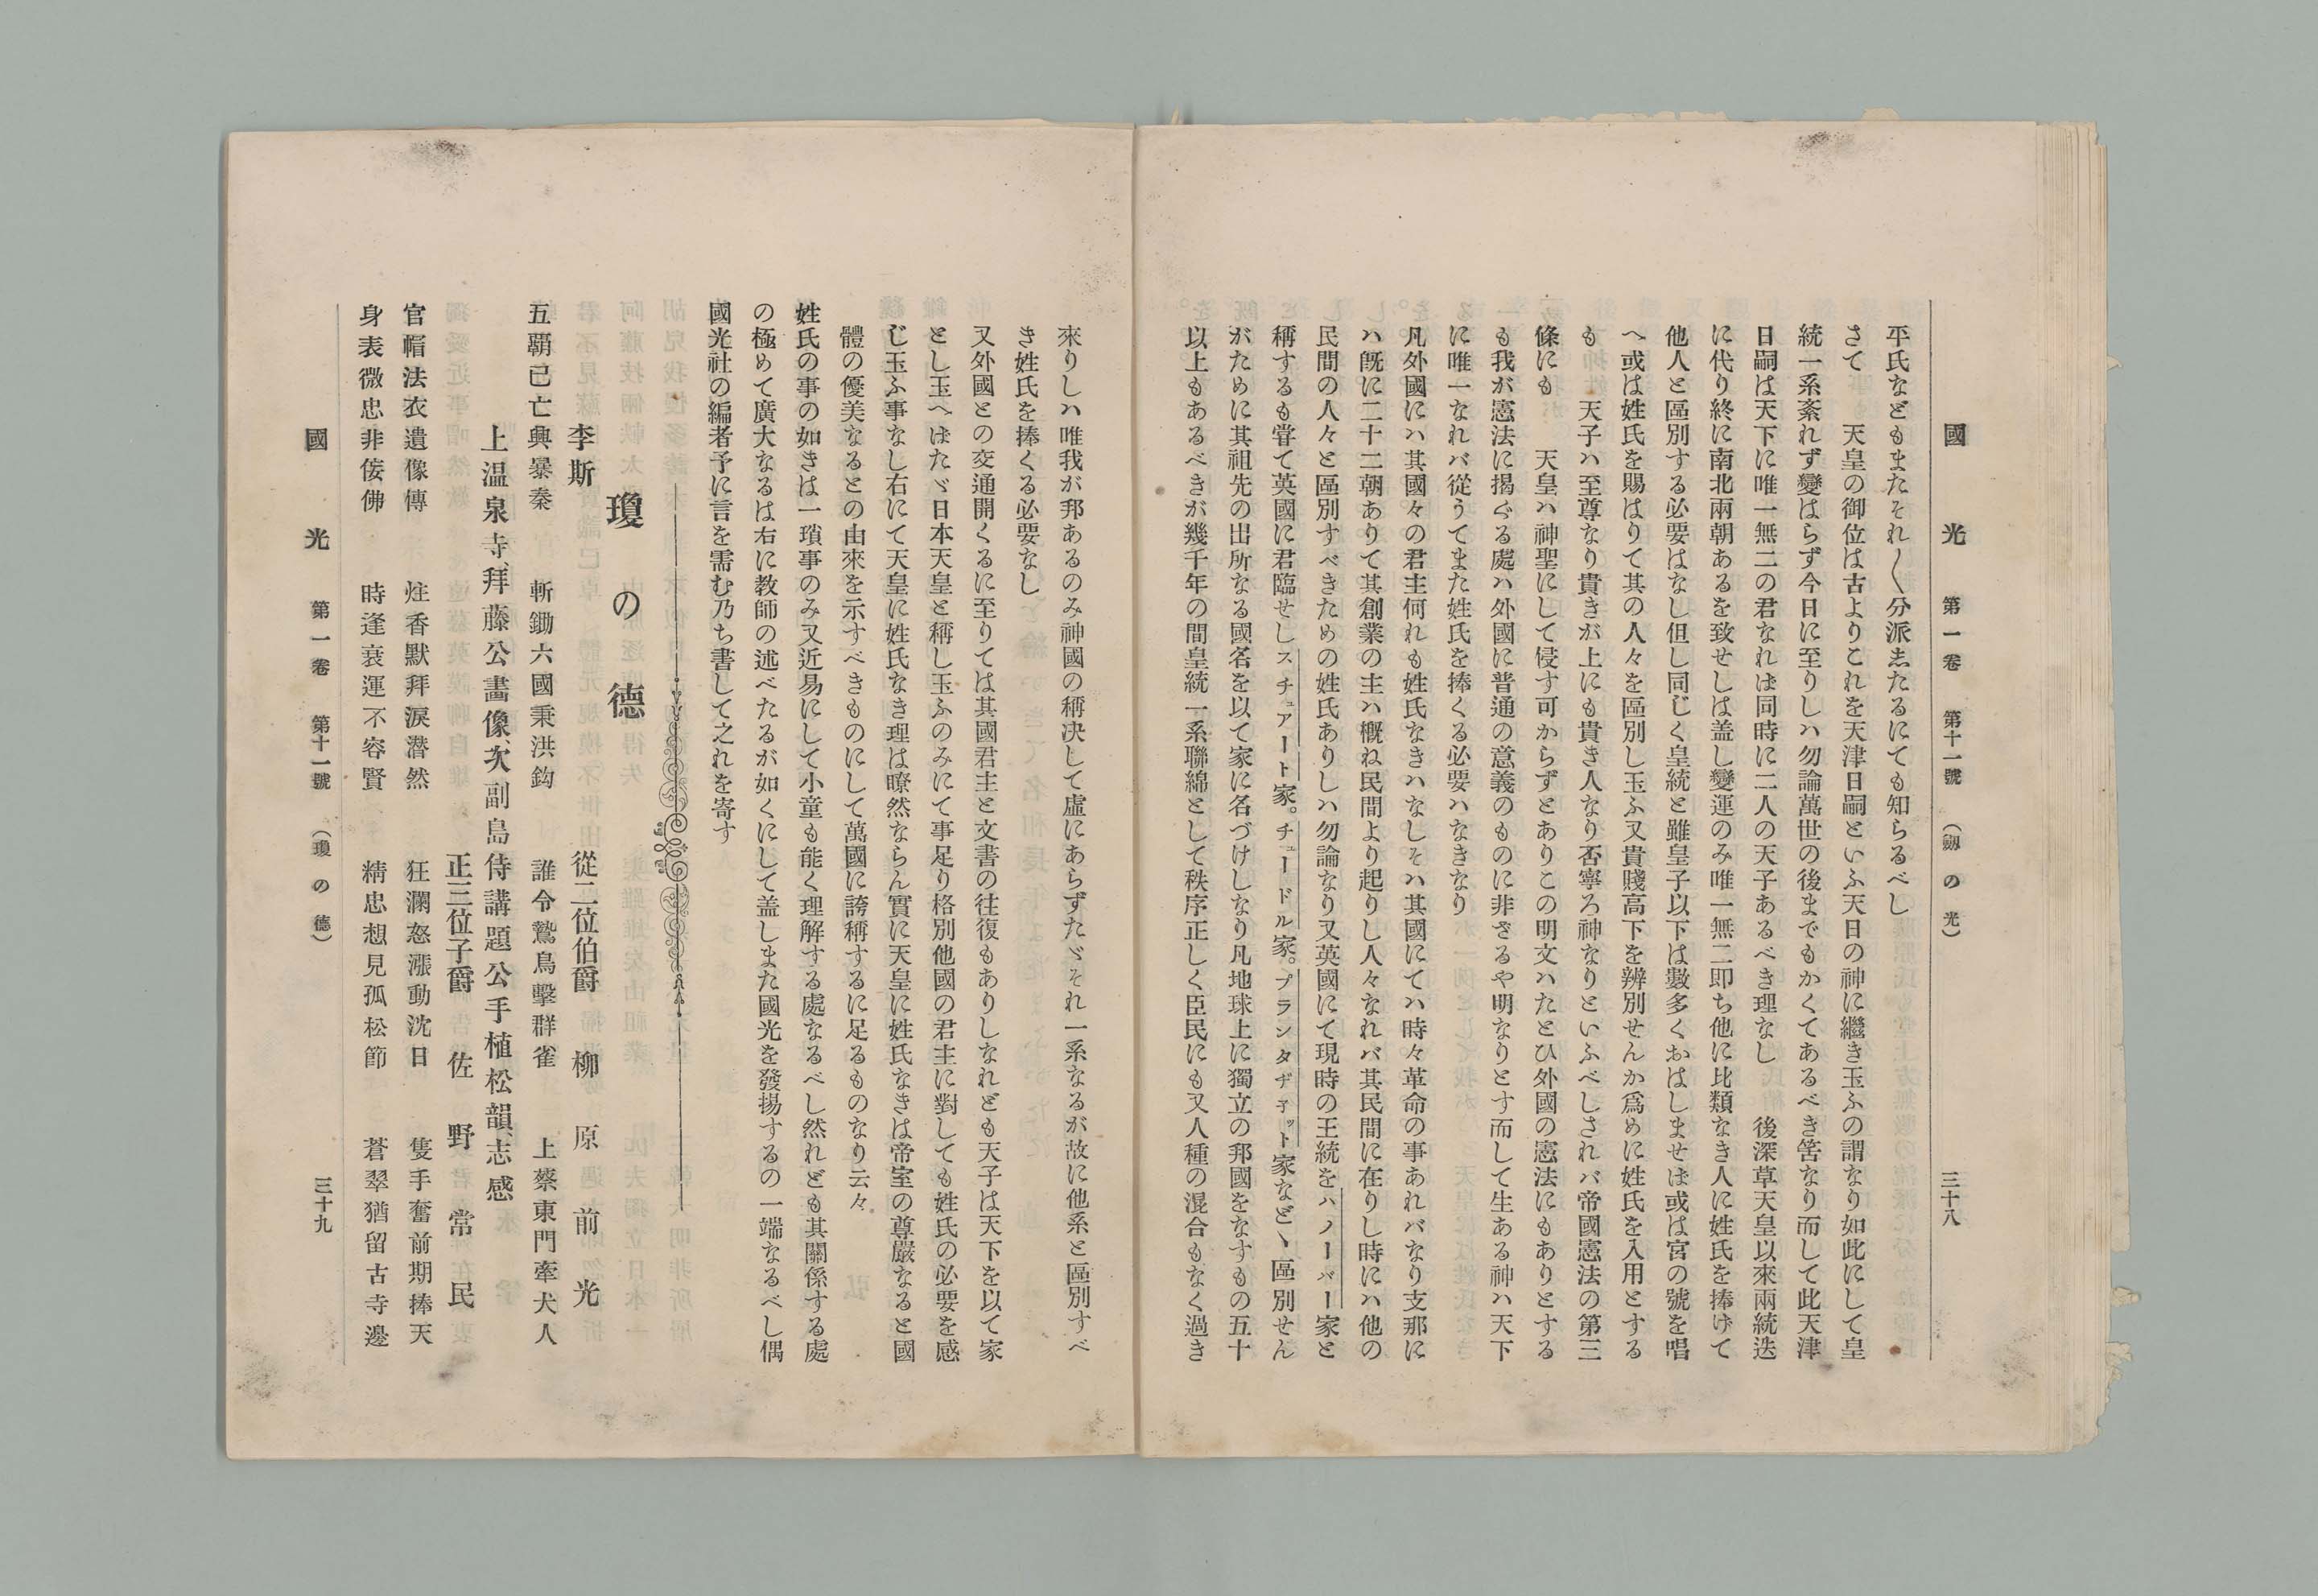 國光 第一卷 第十一號 (劔の光) 三十八
平氏などもまたそれ〳〵分派志たるにても知らるべし
さて 天皇の御位は古よりこれを天津日嗣といふ天日の神に繼き玉ふの謂なり如此にして皇
統一系紊れず變はらず今日に至りしハ勿論萬世の後までもかくてあるべき筈なり而して此天津
日嗣は天下に唯一無二の君なれは同時に二人の天子あるべき理なし 後深草天皇以來兩統迭
に代り終に南北兩朝あるを致せしは盖し變運のみ唯一無二即ち他に比類なき人に姓氏を捧けて
他人と區別する必要はなし但し同じく皇統と雖皇子以下は數多くおはしませは或は宮の號を唱
へ或は姓氏を賜はりて其の人々を區別し玉ふ又貴賤高下を辨別せんか爲めに姓氏を入用とする
も 天子ハ至尊なり貴きが上にも貴き人なり否寧ろ神なりといふべしされバ帝國憲法の第三
條にも 天皇ハ神聖にして侵す可からずとありこの明文ハたとひ外國の憲法にもありとする
も我が憲法に揭ぐる處ハ外國に普通の意義のものに非ざるや明なりとす而して生ある神ハ天下
に唯一なれバ從うてまた姓氏を捧くる必要ハなきなり
凡外國にハ其國々の君主何れも姓氏なきハなしそハ其國にてハ時々革命の事あれバなり支那に
ハ旣に二十二朝ありて其創業の主ハ概ね民間より起りし人々なれバ其民間に在りし時にハ他の
民間の人々と區別すべきための姓氏ありしハ勿論なり又英國にて現時の王統をハノーバー家と
稱するも甞て英國に君臨せしスチュアート家。チュードル家。プランタヂ子ット家などゝ區別せん
がために其祖先の出所なる國名を以て家に名づけしなり凡地球上に獨立の邦國をなすもの五十
以上もあるべきが幾千年の間皇統一系聯綿として秩序正しく臣民にも又人種の混合もなく過き
來りしハ唯我が邦あるのみ神國の稱决して虛にあらずたゞそれ一系なるが故に他系と區別すべ
き姓氏を捧くる必要なし
又外國との交通開くるに至りては其國君主と文書の往復もありしなれども天子は天下を以て家
とし玉へはたゞ日本天皇と稱し玉ふのみにて事足り格別他國の君主に對しても姓氏の必要を感
じ玉ふ事なし右にて天皇に姓氏なき理は瞭然ならん實に天皇に姓氏なきは帝室の尊嚴なると國
體の優美なるとの由來を示すべきものにして萬國に誇稱するに足るものなり云々
姓氏の事の如きは一瑣事のみ又近易にして小童も能く理解する處なるべし然れども其關係する處
の極めて廣大なるは右に教師の述べたるが如くにして盖しまた國光を發揚するの一端なるべし偶
國光社の編者予に言を需む乃ち書して之れを寄す
瓊の德
李斯 從二位伯爵 柳原前光
五覇已亡興暴秦 斬鋤六國秉洪鈞 誰令鷙鳥擊群雀 上蔡東門牽犬人
上温泉寺、拜藤公畫像、次副島侍講題公手植松韻、志感
正三位子爵 佐野常民
官帽法衣遺像傳 炷香默拜淚潸然 狂瀾怒漲動沈日 隻手奮前期捧天
身表微忠非倭佛 時逢衰運不容賢 精忠想見孤松節 蒼翠猶留古寺邊
國光 第一卷 第十一號 (瓊の德) 三十九